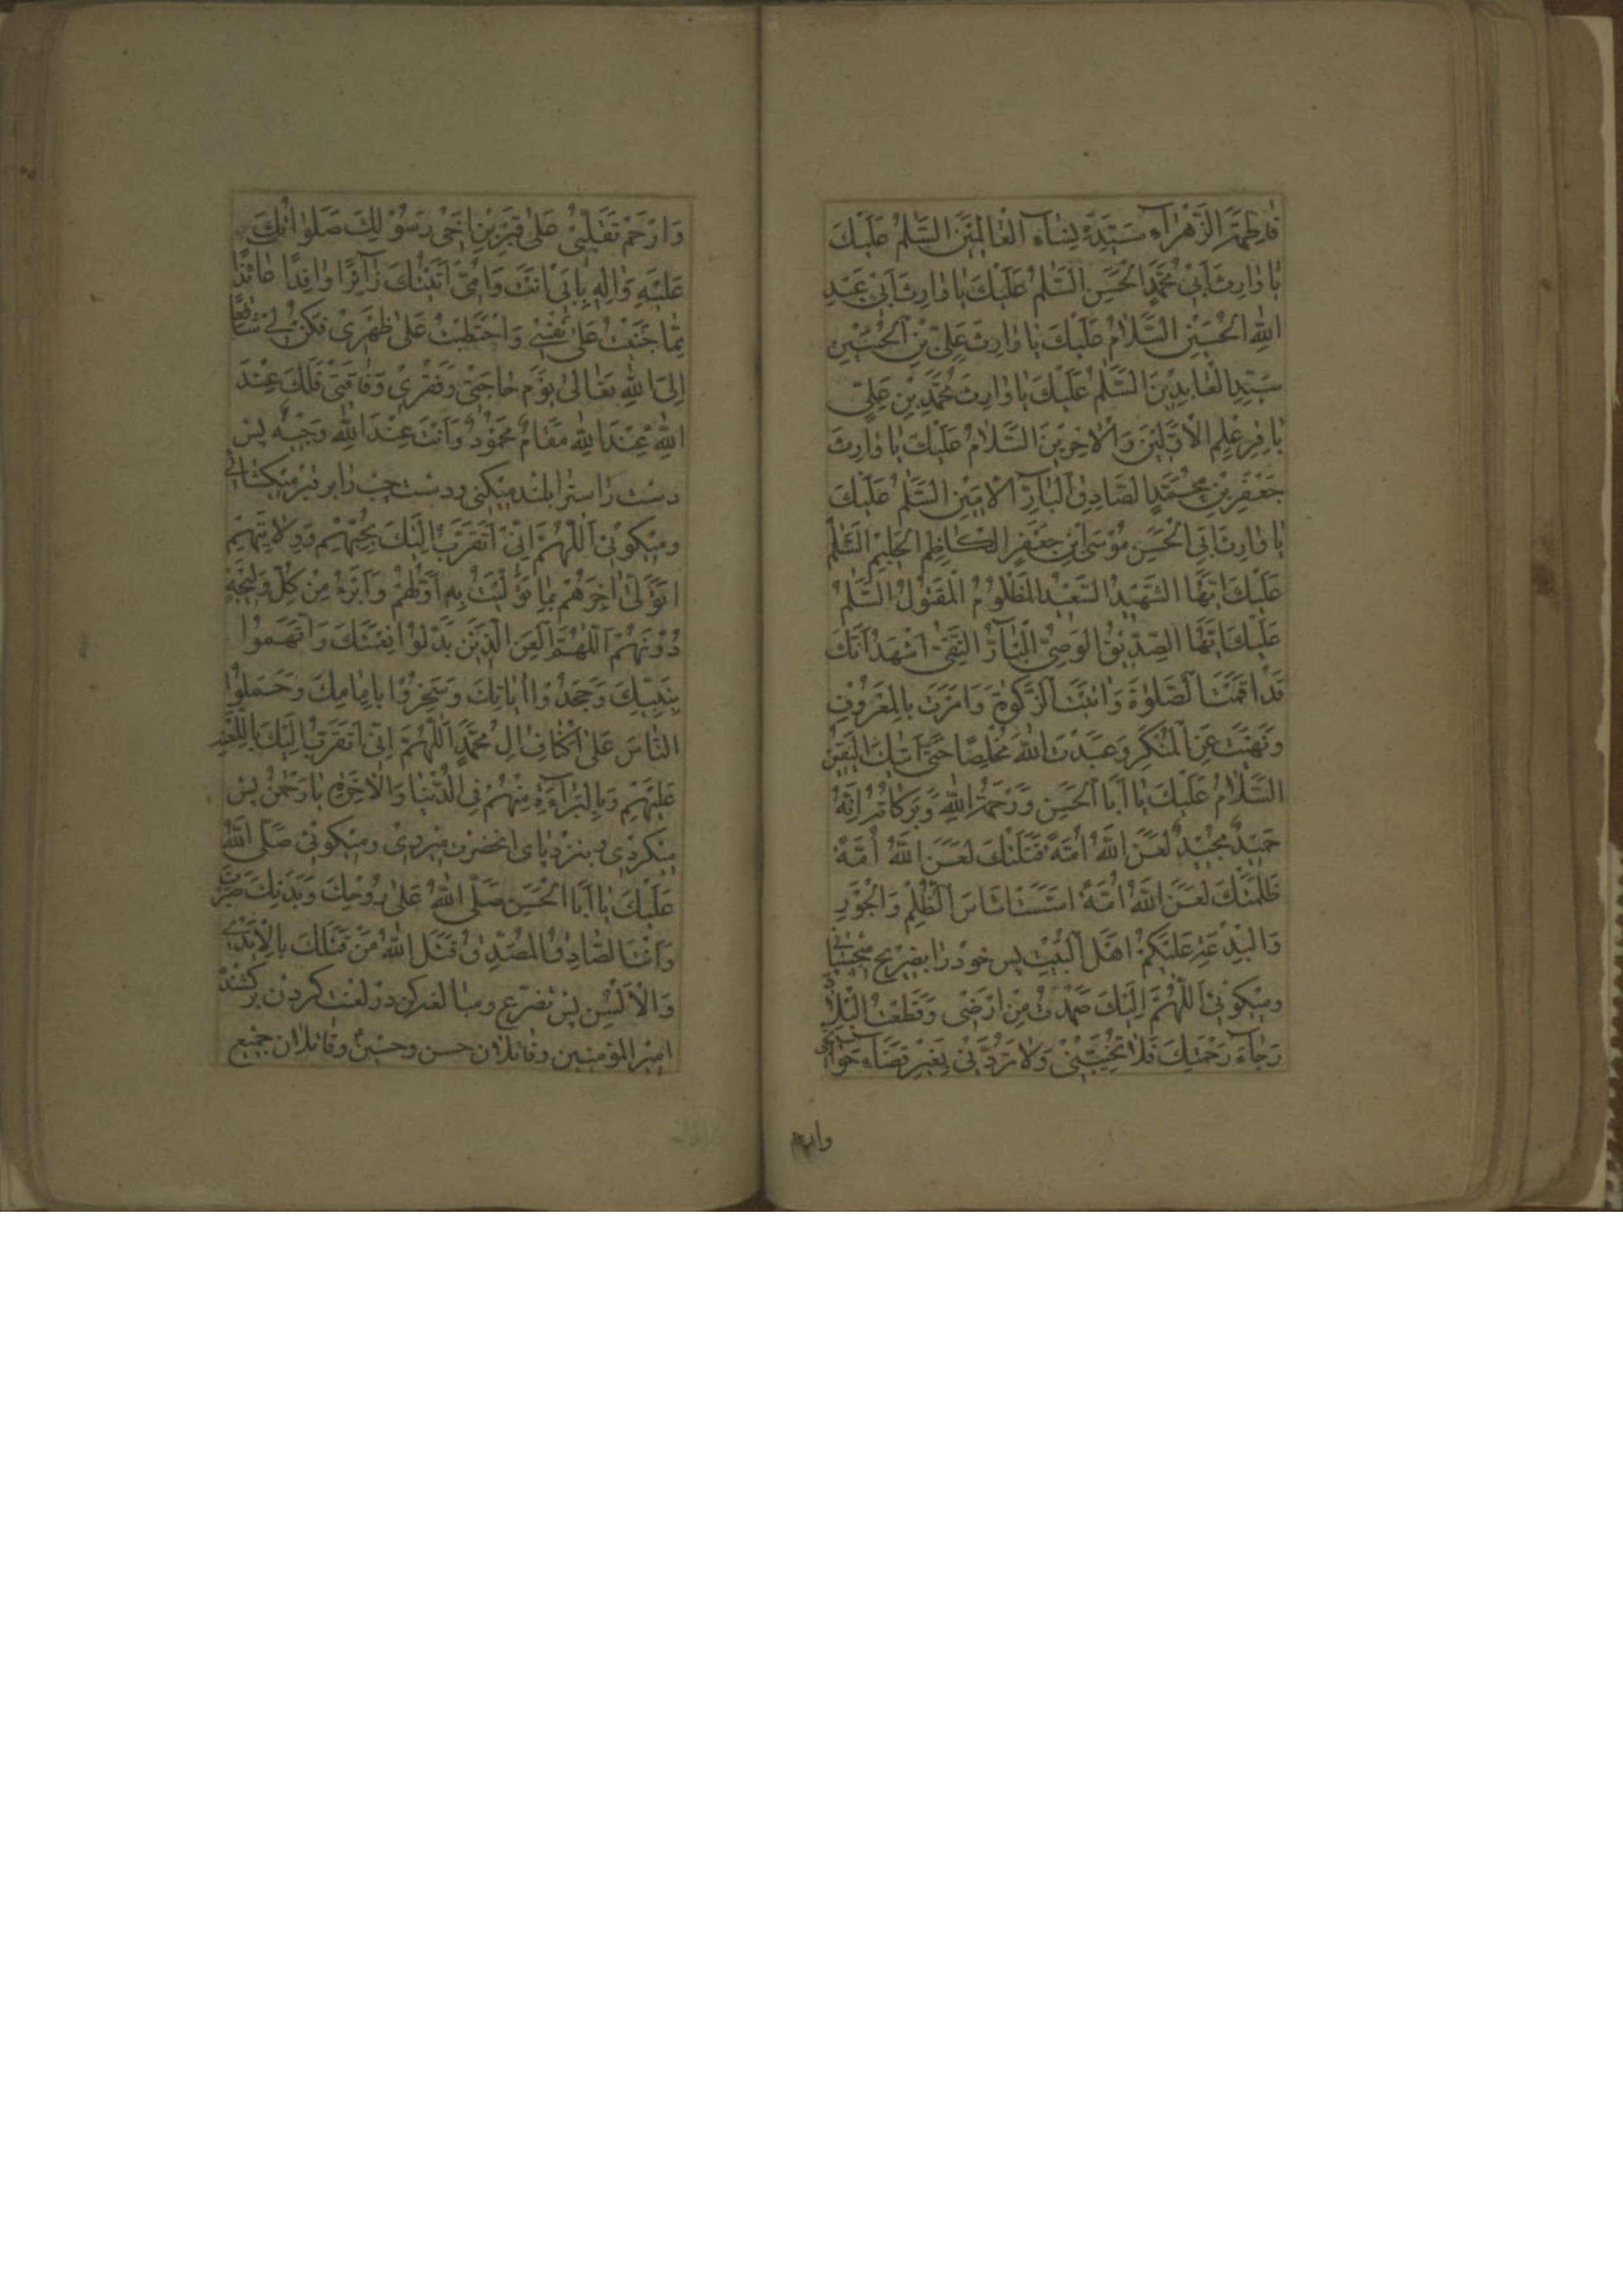 فاطِمَةَ الزَّهْرآءِ سَيِّدَةِ نِسآءِ الْعالَمينَ السَّلٰمُ عَلَيْكَ
يا وارِثَ اَبي مُحَمَّدٍ الْحَسَنِ السَّلٰمُ عَلَيْكَ يا وارِثَ اَبي عَبْدِ
اللهِ الْحُسَيْنِ السَّلامُ عَلَيْكَ يا وارِثَ عَلِيِّ بْنِ الْحُسَيْنِ
سَيِّدِ الْعابِدينَ السَّلٰمُ عَلَيْكَ يا وارِثَ مُحَمَّدِ بْنِ عَلِيٍّ
باقِرِ عِلْمِ الْاَوَّلينَ وَالْاخِرينَ السَّلامُ عَلَيْكَ يا وارِثَ
جَعْفَرِ بْنِ مُحَمَّدٍ الصّادِقِ الْبآرِّ الْاَمينِ السَّلٰمُ عَلَيْكَ
يا وارِثَ اَبِي الْحَسَنِ مُوْسَى ابْنِ جَعْفَرٍ الْكاظِمِ الْحَليمِ السَّلٰمُ
عَلَيْكَ اَيُّهَا الشَّهيدُ السَّعيدُ الْمَظْلُومُ الْمَقْتُولُ السَّلٰمُ
عَلَيْكَ اَيُّهَا الصِّدّيقُ الْوَصِيُّ الْبآرُّ التَّقِيُّ اَشْهَدُ اَنَّكَ
قَدْ اَقَمْتَ الصَّلوٰةَ وَاتَيْتَ الزَّكوٰةَ وَاَمَرْتَ بِالْمَعْرُوفِ
وَنَهَيْتَ عَنِ الْمُنْكَرِ وَعَبَدْتَ اللهَ مُخْلِصًا حَتّى اَتيٰكَ الْيَقينُ
السَّلامُ عَلَيْكَ يا اَبَا الْحَسَنِ وَرَحْمَةُ اللهِ وَبَرَكاتُهُ اِنَّهُ
حَميدٌ مَجيدٌ لَعَنَ اللهُ اُمَّةً قَتَلَتْكَ لَعَنَ اللهُ اُمَّةً
ظَلَمَتْكَ لَعَنَ اللهُ اُمَّةً اَسَّسَتْ اَساسَ الظُّلْمِ وَالْجَوْرِ
وَالْبِدْعَةِ عَلَيْكُمْ اَهْلَ الْبَيْتِ پس خود را بضريح ميچسبانى
وميكوئى اَللّٰهُمَّ اِلَيْكَ صَمَدْتُ مِنْ اَرْضي وَقَطَعْتُ الْبِلادَ
رَجآءَ رَحْمَتِكَ فَلا تُخَيِّبْني وَلا تَرُدَّني بِغَيْرِ قَضآءِ حَوائجى
وارحم
وَارْحَمْ تَقَلُّبي عَلى قَبْرِ بْنِ اَخي رَسُوْلِكَ صَلَواتُكَ
عَلَيْهِ وَالِهِ بِاَبي اَنْتَ وَاُمّي اَتَيْتُكَ زآئِرًا وافِدًا عائذًا
مِمّا جَنَيْتُ عَلى نَفْسي وَاحْتَطَبْتُ عَلى ظَهْري فَكُنْ لي شافِعًا
اِلَى اللهِ تَعالى يَوْمَ حاجَتي وَفَقْري وَفاقَتي فَلَكَ عِنْدَ
اللهِ عِنْدَ اللهِ مَقامٌ مَحْمُوْدٌ وَاَنْتَ عِنْدَ اللهِ وَجيهٌ پس
دست راست را بلند ميكنى ودست چپ را بر قبر ميكشائى
وميكوئى اَللّٰهُمَّ اِنّي اَتَقَرَّبُ اِلَيْكَ بِحُبِّهِمْ وَوِلايَتِهِمْ
اَتَوَلّى اخِرَهُمْ بِما تَوَلَّيْتُ بِهِ اَوَّلَهُمْ وَاَبْرَءُ مِنْ كُلِّ وَليجَةٍ
دُوْنَهُمْ اَللّٰهُمَّ الْعَنِ الَّذينَ بَدَّلُوا نِعْمَتَكَ وَاتَّهَمُوا
نَبِيَّكَ وَجَحَدُوا اياتِكَ وَسَخِرُوا بِاِمامِكَ وَحَمَلُوا
النّاسَ عَلى اَكْتافِ الِ مُحَمَّدٍ اَللّٰهُمَّ اِنّي اَتَقَرَّبُ اِلَيْكَ بِاللَّعْنَةِ
عَلَيْهِمْ وَبِالْبَرآءَةِ مِنْهُمْ فِي الدُّنْيا وَالْاخِرَةِ يا رَحْمٰنُ پس
ميكردى وبنزد پاى انحضرت ميروى وميكوئى صَلَّى اللهُ
عَلَيْكَ يا اَبَا الْحَسَنِ صَلَّى اللهُ عَلى رُوْحِكَ وَبَدَنِكَ صَبَرْتَ
وَاَنْتَ الصّادِقُ الْمُصَدِّقُ قَتَلَ اللهُ مَنْ قَتَلَكَ بِالْاَيْدي
وَالْاَلْسُنِ پس تضرع ومبالغه كن در لعنت كردن بر كشندة
امير المؤمنين وقاتلان حسن وحسين وقاتلان جميع